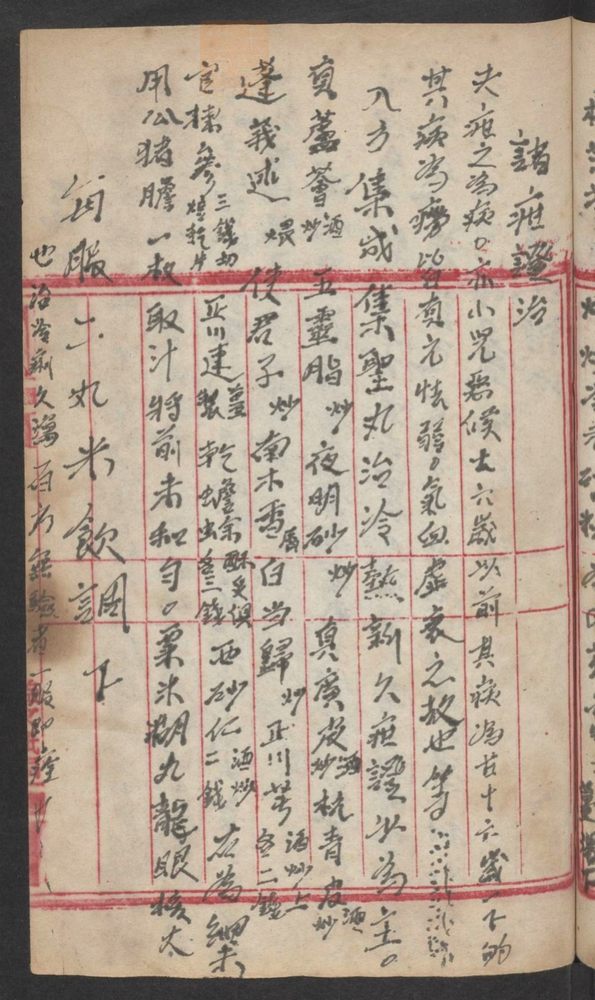 諸疳證治
夫疳之為病。亦小兒惡候十六歲以前其病為疳十六歲以下
其病為癆皆真元怯弱。氣血虛衰之故也
入方集成集聖丸治冷熱新久疳證此為主。
真蘆薈酒炒五靈脂炒夜明砂炒真廣皮酒炒杭青皮酒炒
蓬莪朮煨使君子炒南木香白當歸炒正川芎酒炒以上各二錢
官楝參三錢切片正川連薑製乾蟾蜍酥炙俱各三錢西砂仁酒炒二錢右為細末
用公猪膽一枚取汁將前末和勻。粟米糊丸龍眼核大
每服二丸米飲調下
也治冷痢久瀉百方無驗者一服即痊